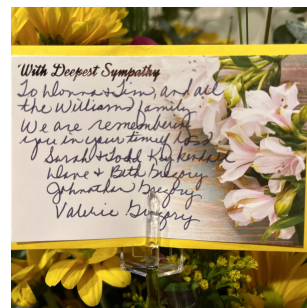 With Deepest Sympathy
To Donna & Tim, and all
the Williams family.
We are remembering
you in your time of loss
Sarah & Todd Kuykendall
Dane & Beth Gregory
Johnathan Gregory
Valerie Gregory